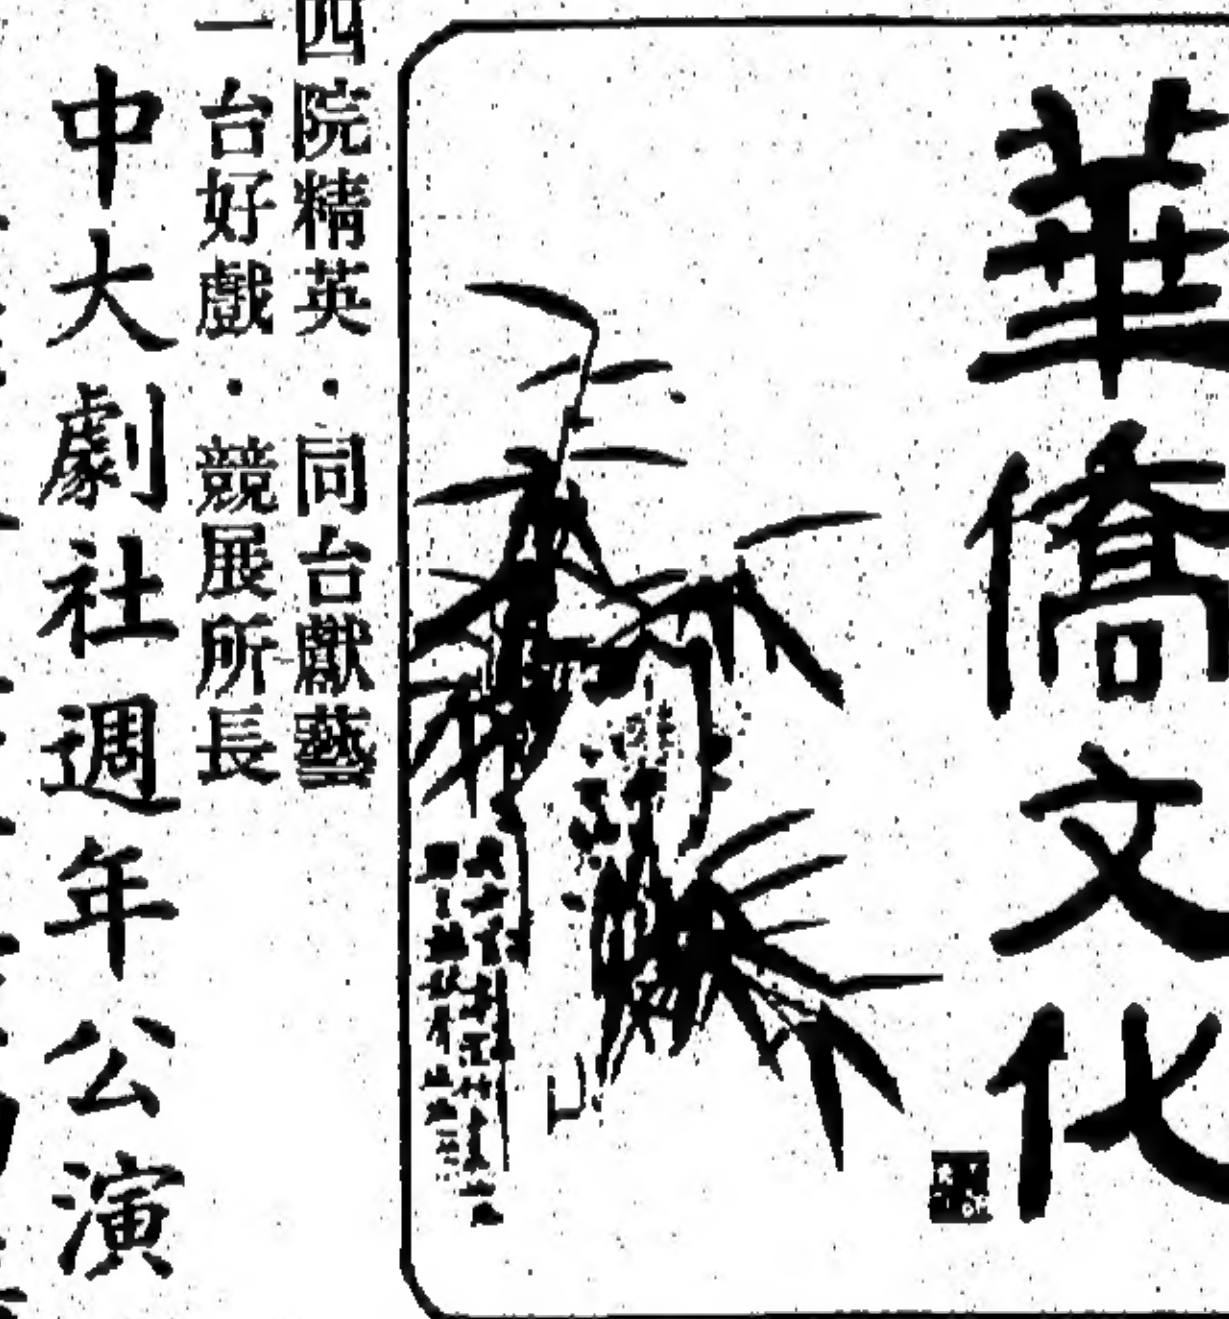 華僑文化
四院精英・同台獻藝
一台好戲・競展所長
中大劇社週年公演